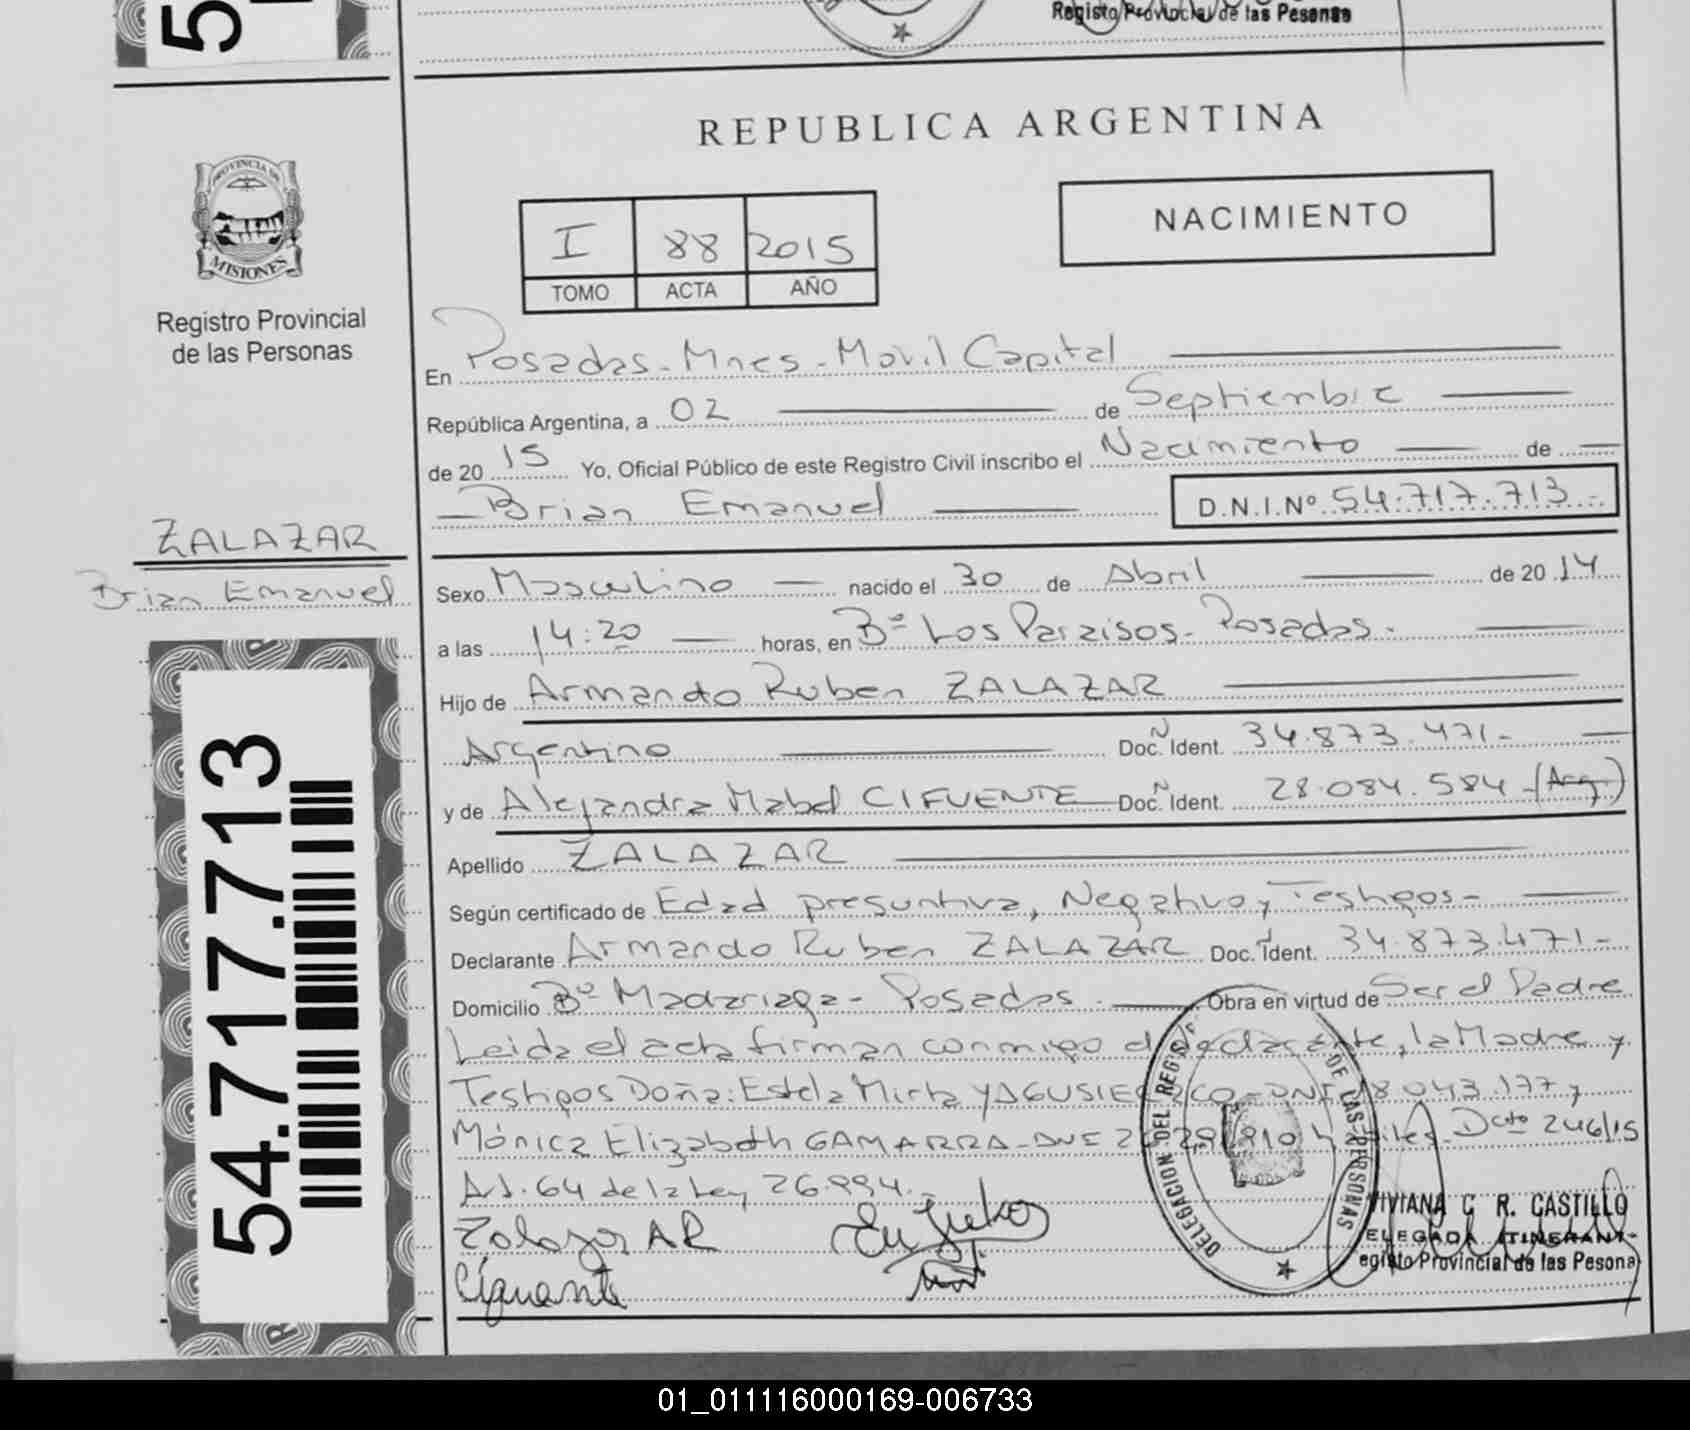 5
Registro Provincial de las Pesonas
REPUBLICA ARGENTINA
NACIMIENTO
I 88 2015
TOMO ACTA AÑO
PROVINCIA DE
MISIONES
Registro Provincial
de las Personas
En Posadas - Mnes - Movil Capital
República Argentina, a 02 de Septiembre
de 20 15 Yo, Oficial Público de este Registro Civil inscribo el Nacimiento de
Brian Emanuel D.N.I.Nº 54.717.713.-
ZALAZAR
Brian Emanuel
Sexo Masculino nacido el 30 de Abril de 20 14
a las 14:20 horas, en Bº Los Paraisos - Posadas.
Hijo de Armando Ruben ZALAZAR
Argentino Doc. Ident. 34.873.471-
y de Alejandra Mabel CIFUENTE Doc. Ident. 28.084.584 - (Arg.)
Apellido ZALAZAR
Según certificado de Edad presuntiva, Negativo y Testigos-
Declarante Armando Ruben ZALAZAR Doc. Ident. 34.873.471-
Domicilio Bº Madariaga - Posadas. Obra en virtud de Ser el Padre
Leida el acta firman conmigo el declarante, la Madre y
Testigos Doña: Estela Mirta DNI 18.043.177 y
Mónica Elizabeth GAMARRA - DNI Dcto 246/15
Art. 64 de la Ley 26.994.-
Zalazar AR
Cifuente
DELEGACION DEL REGIST DE LAS PERSONAS
VIVIANA C R. CASTILLO
ELEGADA ITINERANT
egisto Provincial de las Pesona
54.717.713
01_011116000169-006733